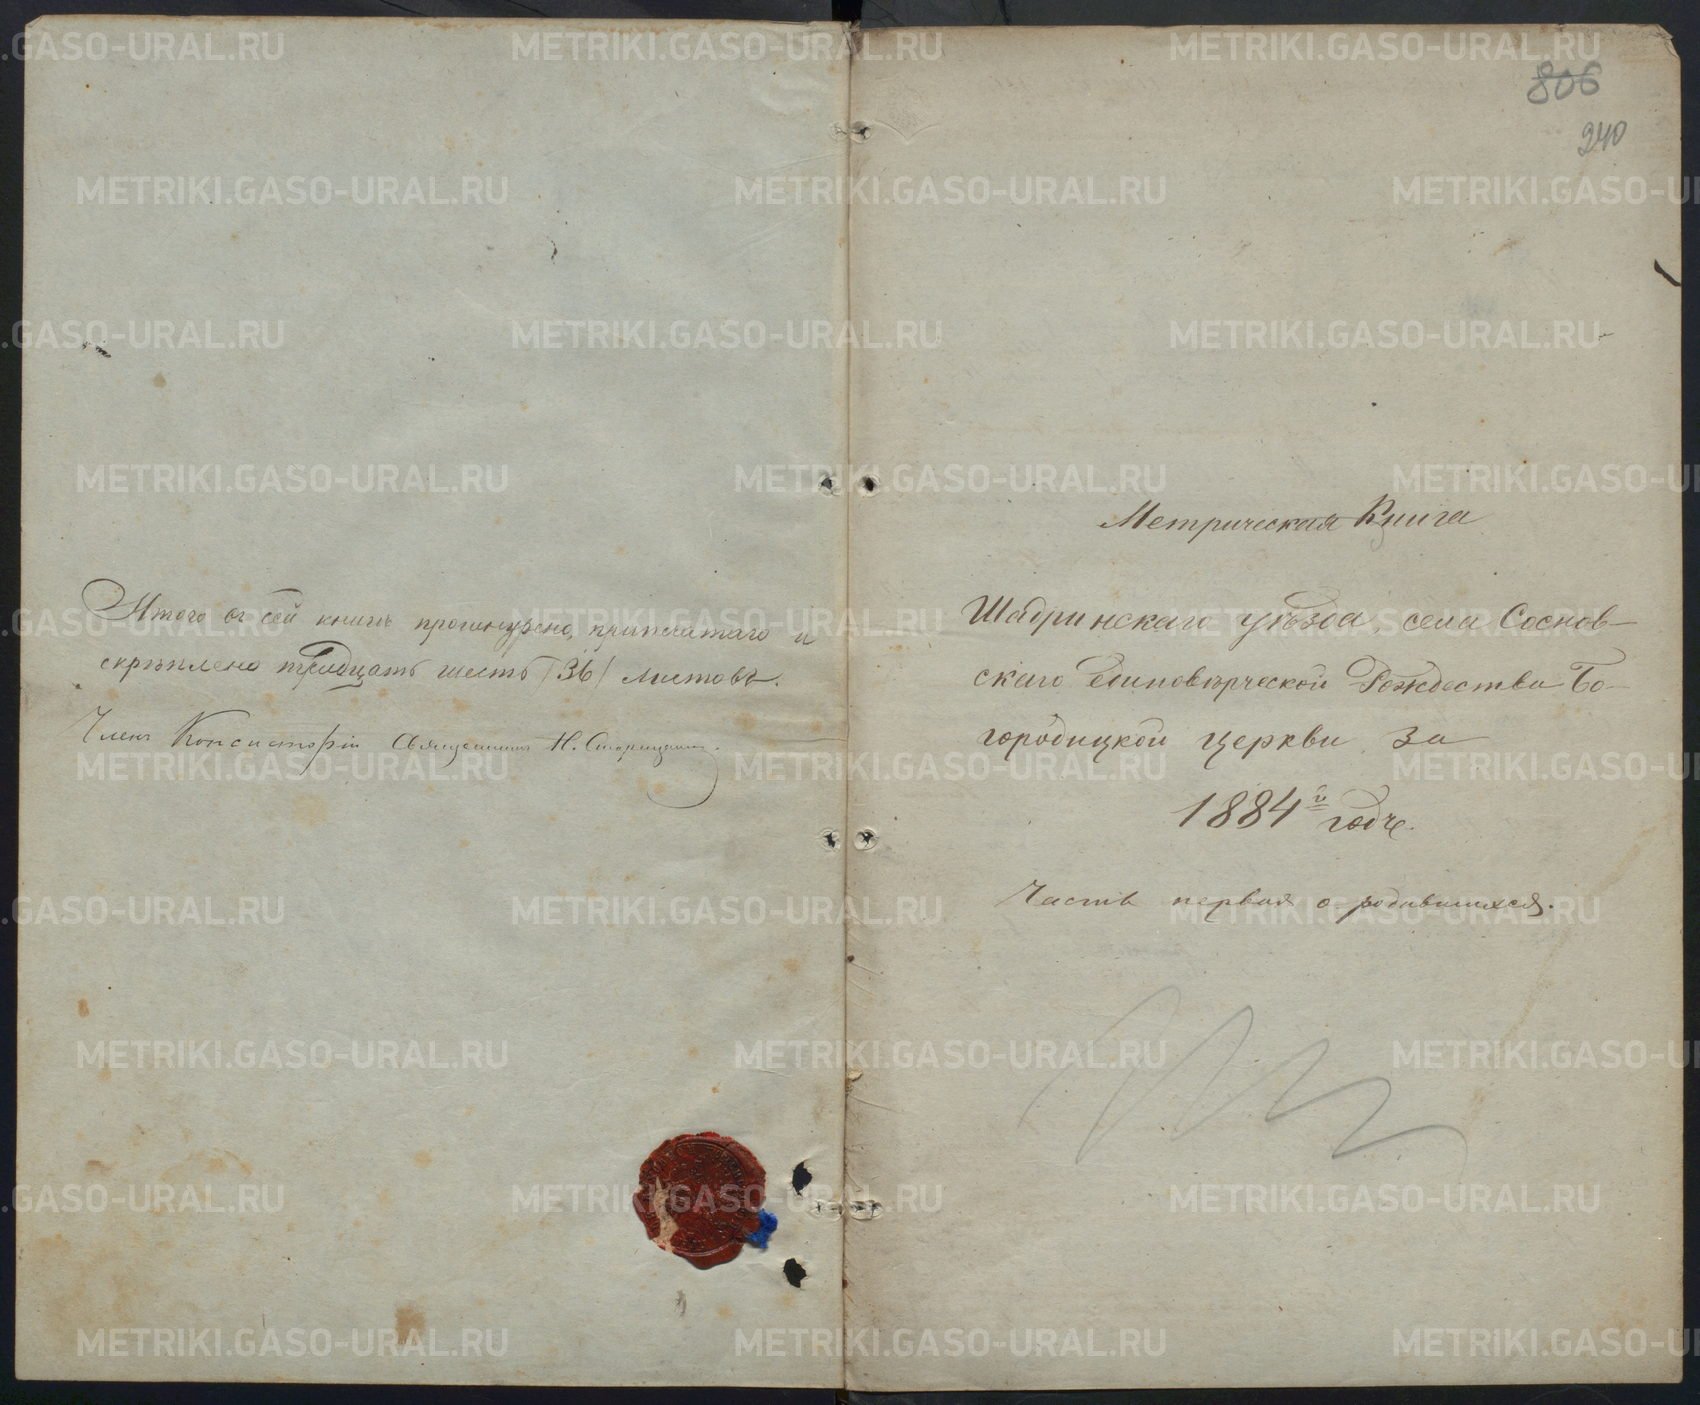 Итого въ сей книгѣ прошнурено, припечатаго и
скрѣплено тридцать шесть /36/ листовъ.
Членъ Консисторіи Священникъ Н.
806
240
Метрическая Книга
Шадринскаго уѣзда, села Соснов-
скаго Единовѣрческой Рождество Бо-
городицкой церкви за
1884й годъ.
Часть первая о родившихся.
METRIKI.GASO-URAL.RU